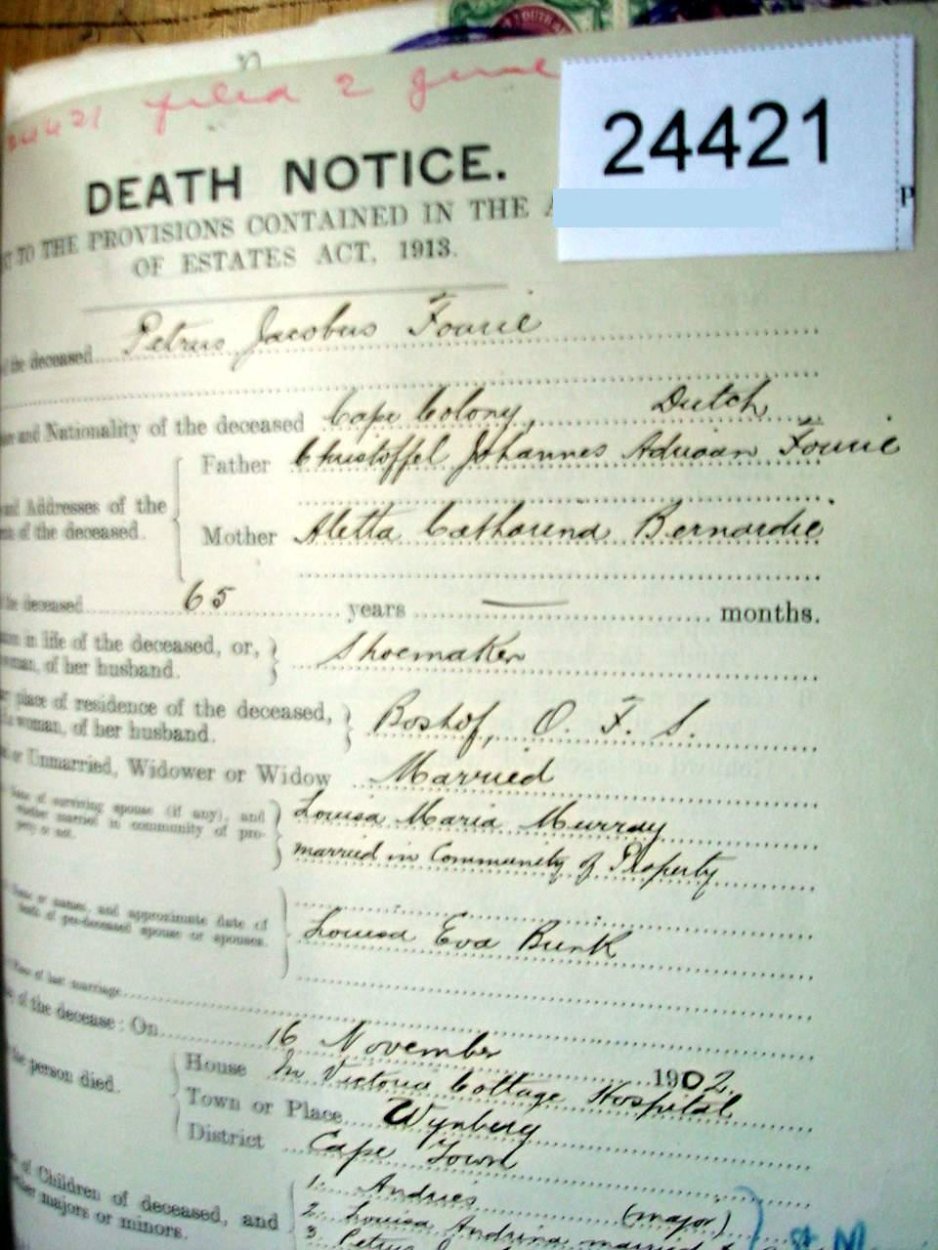 24421 filed 2 June
24421
DEATH NOTICE.
TO THE PROVISIONS CONTAINED IN THE A
P
OF ESTATES ACT, 1913.
the deceased Petrus Jacobus Fourie
and Nationality of the deceased Cape Colony, Dutch
Father Christoffel Johannes Adriaan Fourie
and Addresses of the
of the deceased.
Mother Aletta Catharina Bernardie
the deceased 65 years — months.
in life of the deceased, or,
woman, of her husband. Shoemaker
place of residence of the deceased,
a woman, of her husband. Boshof, O. F. S.
or Unmarried, Widower or Widow Married
of surviving spouse (if any), and
whether married in community of pro-
perty or not.
Louisa Maria Murray
married in Community of Property
or names, and approximate date of
death of pre-deceased spouse or spouses.
Louisa Eva Bunk
Place of last marriage
of the decease: On 16 November 1902.
the person died.
House In Victoria Cottage Hospital
Town or Place Wynberg
District Cape Town
of Children of deceased, and
majors or minors.
1. Andries (major)
2. Louisa Andrina married
3. Petrus J